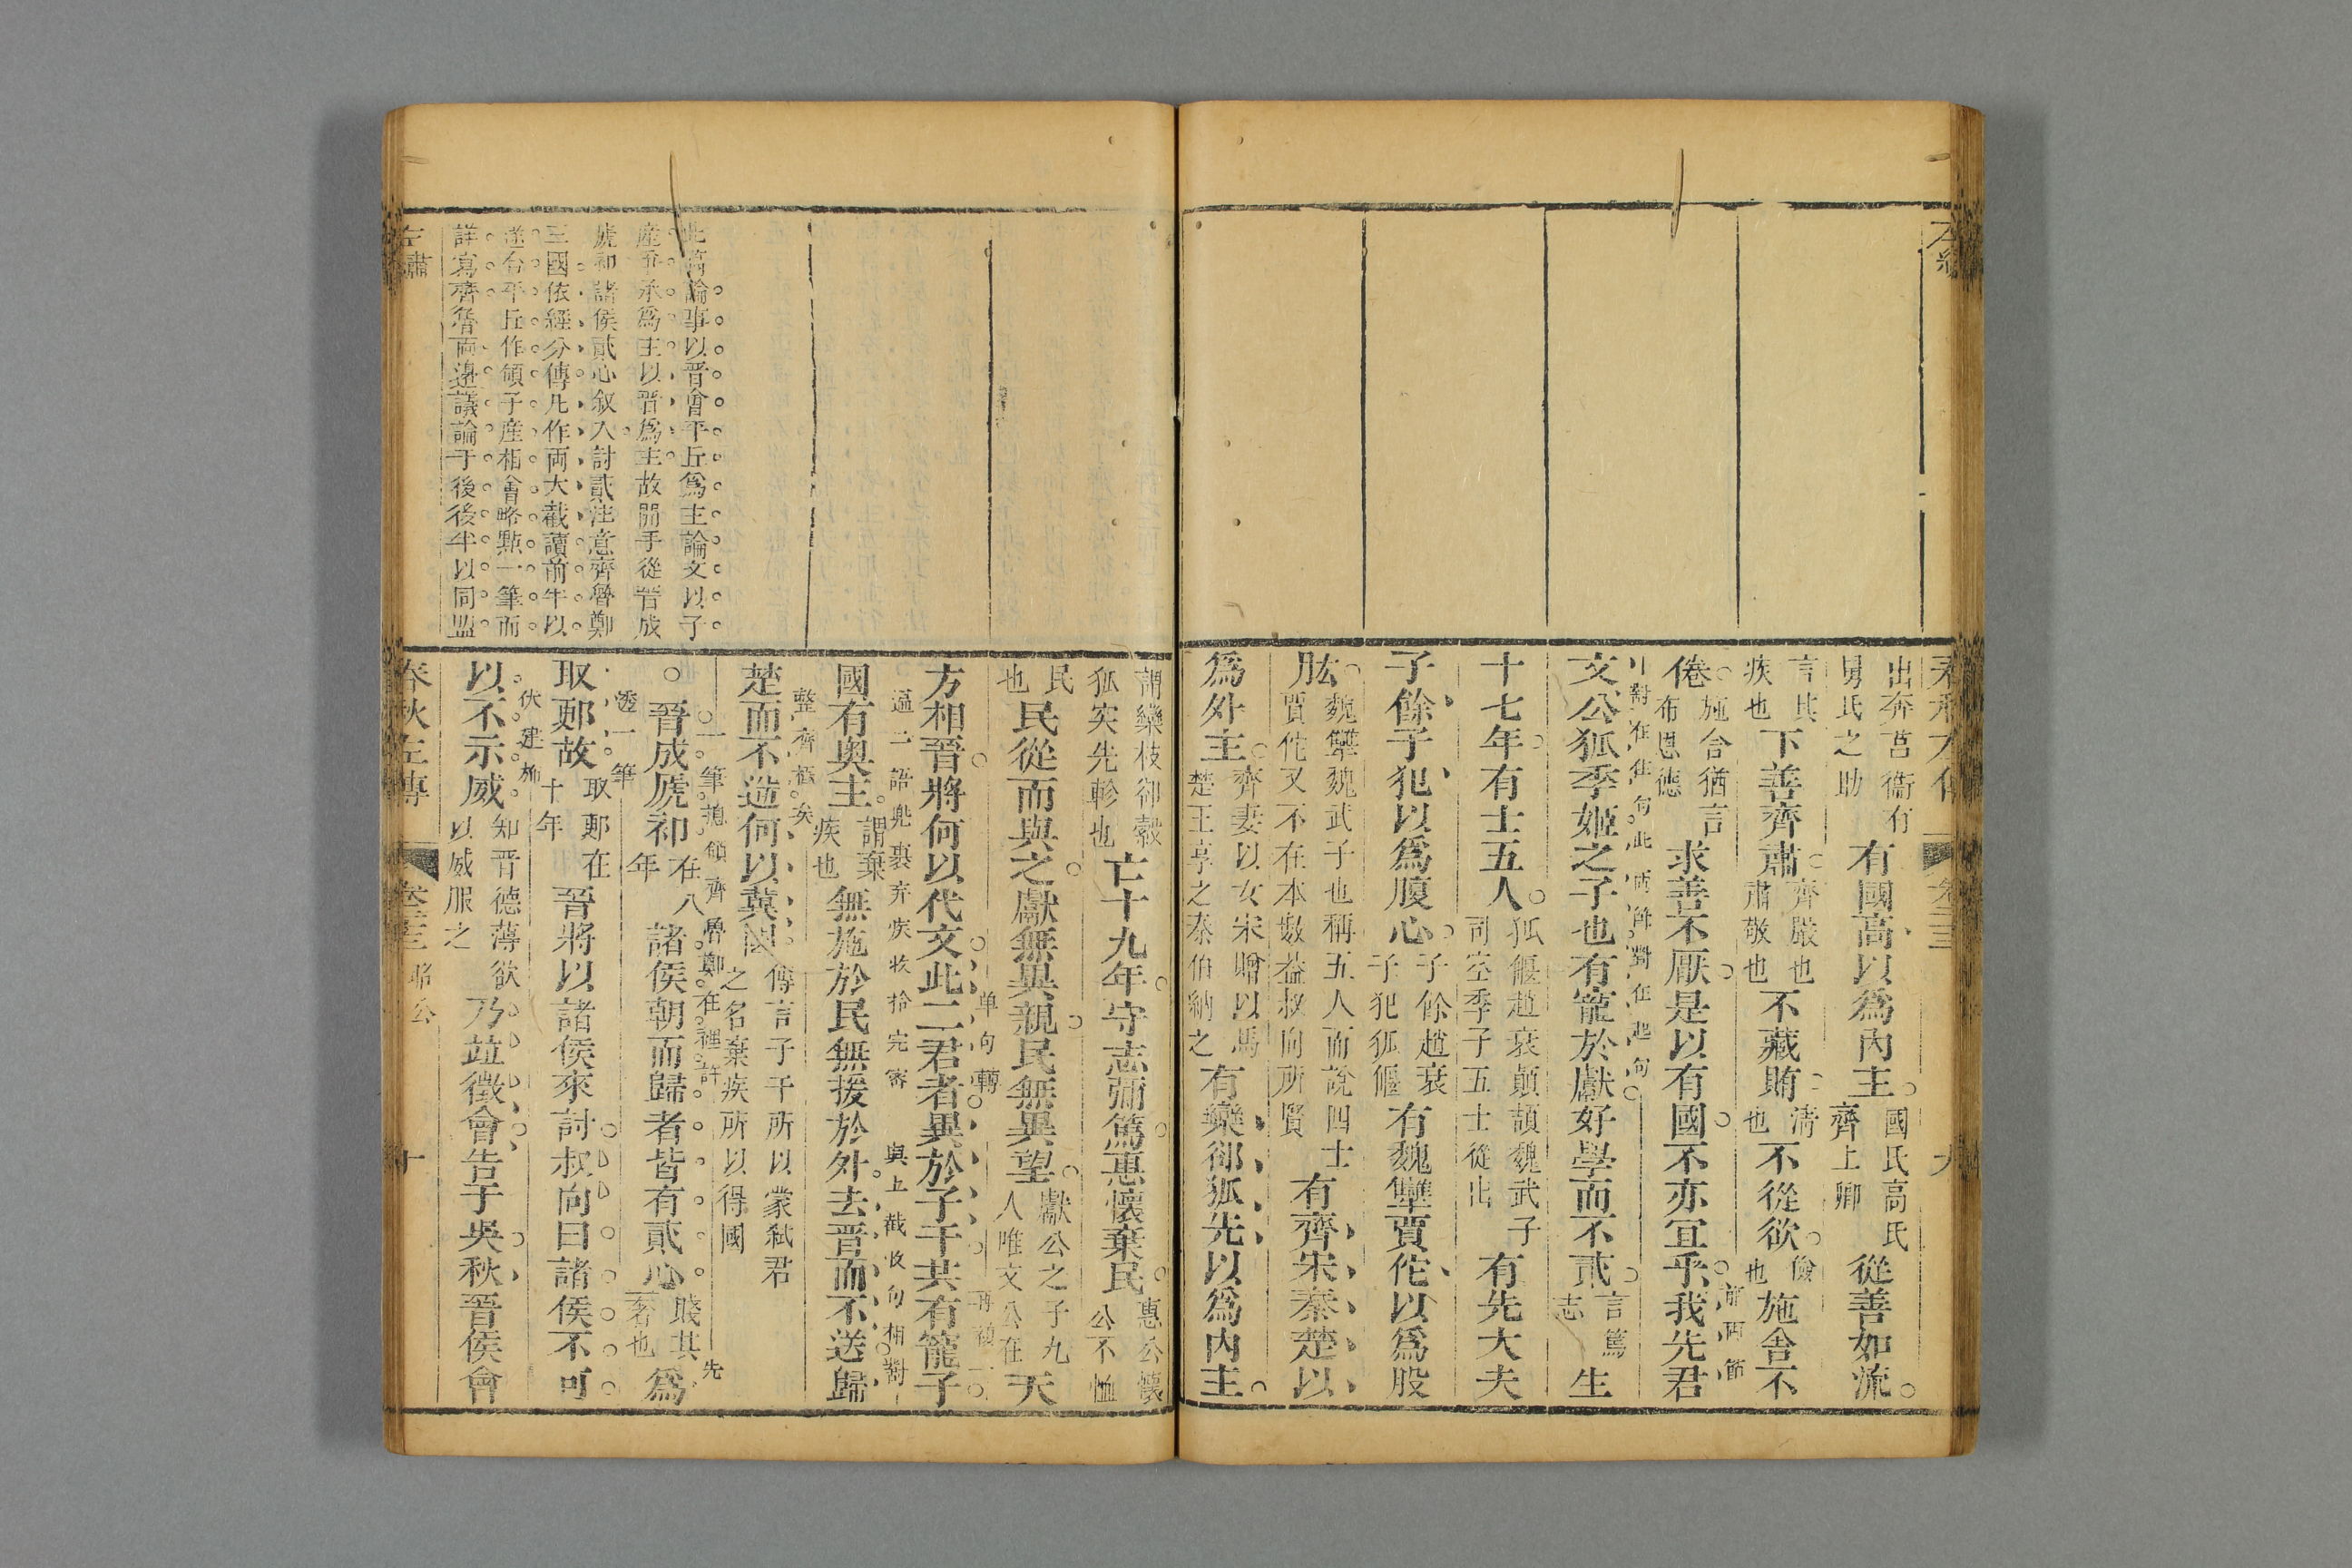 出奔莒衞有舅氏之助有國高以為內主國氏高氏齊上卿從善如流
言其疾也下善齊肅齊嚴也肅敬也不藏賄清也不從欲儉也施舍不
倦施舍猶言布恩德求善不厭是以有國不亦宜乎我先君
前兩節
對在住句此兩節對在起句
文公狐季姬之子也有寵於獻好學而不貳言篤志生
十七年有士五人狐偃趙衰顛頡魏武子司空季子五士從出有先大夫
子餘子犯以為腹心子餘趙衰子犯狐偃有魏犫賈佗以為股
肱魏犫魏武子也稱五人而說四士賈佗又不在本數葢叔向所賢有齊宋秦楚以
為外主齊妻以女宋贈以馬楚王享之秦伯納之有欒郤狐先以為內主
謂欒枝郤縠狐突先軫也亡十九年守志彌篤惠懷棄民惠公懷公不恤
民也民從而與之獻無異親民無異望獻公之子九人唯文公在天
方相晉將何以代文此二君者異於子干共有寵子
单句轉
國有奧主謂棄疾也無施於民無援於外去晉而不送歸
逼二語兜裹弃疾收拾完密
與上截收句相對
楚而不逆何以冀國傳言子干所以蒙弒君之名棄疾所以得國
整齊極矣
○晉成虒祁在八年諸侯朝而歸者皆有貳心賤其奢也為
一筆揔領齊魯鄭在裡許
先
取郠故取郠在十年晉將以諸侯來討叔向曰諸侯不可
透一筆
以不示威知晉德薄欲以威服之乃竝徵會告于吳秋晉侯會
伏建斾
此篇論事以晉會平丘爲主論文以子
産爭承爲主以晉爲主故開手從晉成
虒祁諸侯貳心叙入討貳注意齊魯鄭
三國依經分傳凡作両大截讀前半以
遂合平丘作領子産相會略點一筆而
詳寫齊魯両邊議論于後後半以同盟
左繡
春秋左傳
卷二三
昭公
十